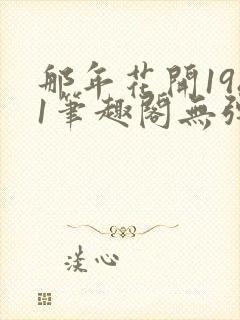 那年花開19
1筆趣閣無彈
淡心